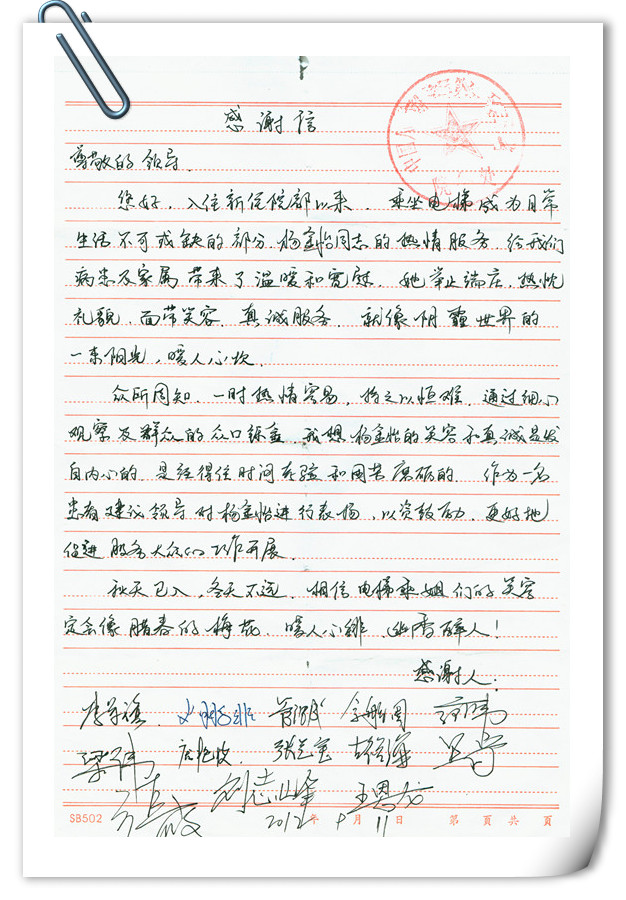 感谢信
尊敬的领导
您好，入住新住院部以来，乘坐电梯成为日常
生活不可或缺的部分，杨金怡同志的热情服务，给我们
病患及家属带来了温暖和宽慰，她举止端庄，热忱
礼貌、面带笑容、真诚服务，就像阴霾世界的
一束阳光，暖人心坎。
众所周知，一时热情容易，持之以恒难，通过细心
观察及群众的众口铄金，我想杨金怡的笑容和真诚是发
自内心的，是经得住时间考验和困苦磨砺的。作为一名
患者建议领导对杨金怡进行表扬，以资鼓励，更好地
促进服务大众的工作开展。
秋天已入，冬天不远，相信电梯乘姐们的笑容
定会像腊春的梅花，暖人心绯，幽香醉人！
感谢人：
梁伟
刘志峰 王恩
2012年9月11日 第 页 共 页
SB502